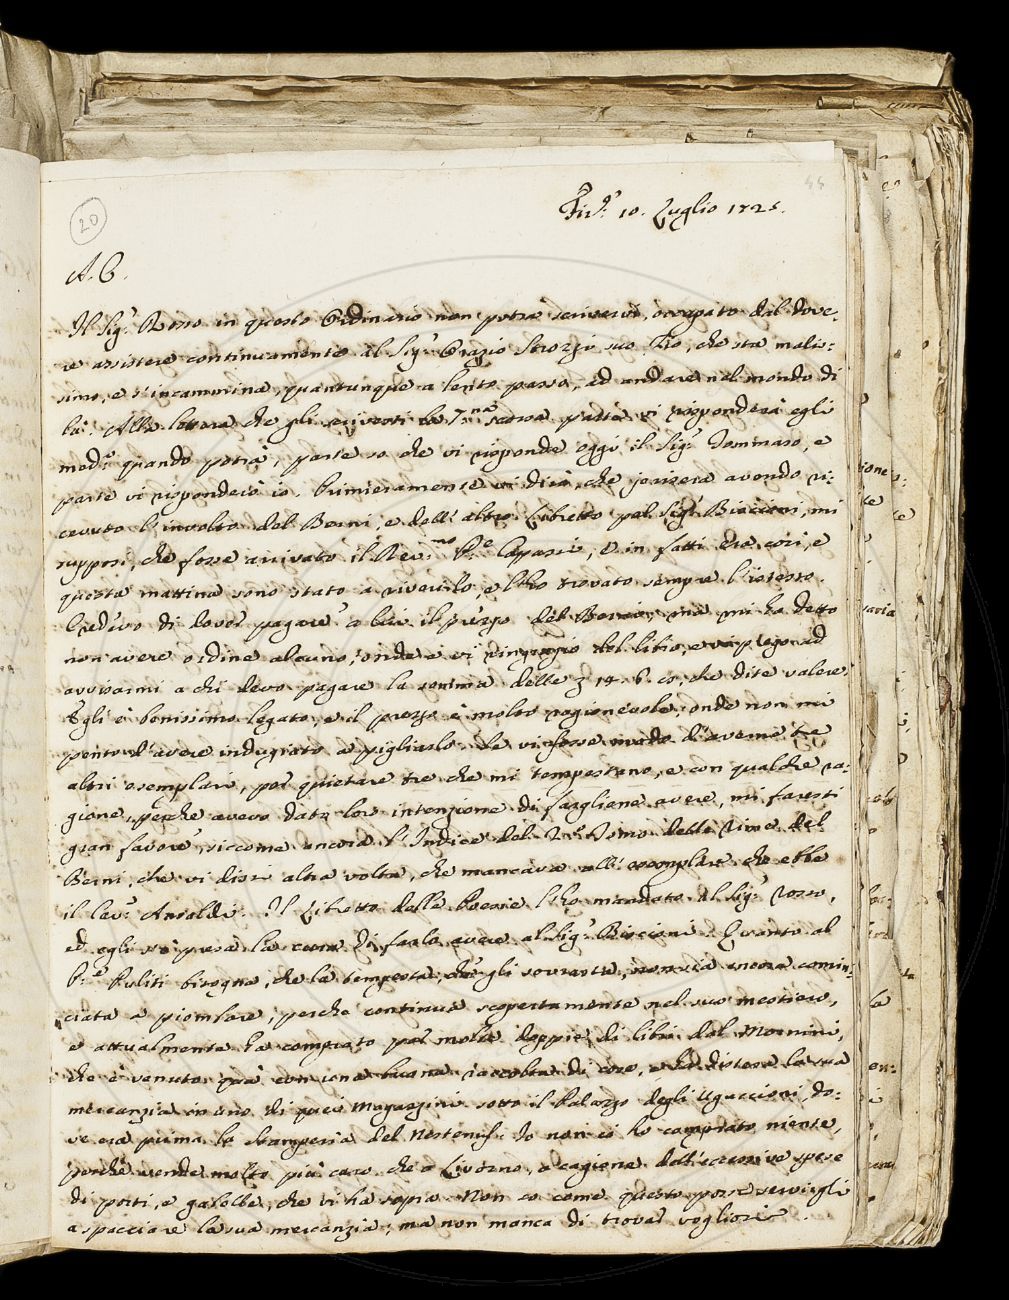 20
Fir.e 10. Luglio 172
A. C.
Il Sig.r Rosso in questo Ordinario non potrà scrivervi, occupato dal dove:
re assistere continuamente al Sig.r Orazio Strozzi suo Zio, che sta malis:
simo, e s'incammina, quantunque a lento passo, ad andare nel mondo di
là. Alla lettera che gli scriveste la 7.na scorsa parte vi risponderà egli
med.o quando potrà, parte so che vi risponde oggi il Sig.r Tommaso, e
parte vi risponderò io. Primieramente vi dirò, che jersera avendo ri:
cevuto l'involto del Berni, e dell'altro Libretto pel Sig.r Biscioni, mi
supposi, che fosse arrivato il Rev.mo P.e Capassi, e in fatti era così, e
questa mattina sono stato a riverirlo, e l'ho trovato sempre l'istesso.
Credevo di dover pagare a lui il prezzo del Berni, ma mi ha detto
non avere ordine alcuno, onde vi ringrazio del libro, e vi prego ad
avvisarmi a chi devo pagare la somma delle 14. 6. 10, che dite valere.
Egli è bonissimo legato, e il prezzo è molto ragionevole, onde non mi
pento d'avere indugiato a pigliarlo. Se vi fosse modo d'averne tre
altri esemplari, per quietare tre che mi tempestano, e con qualche ra:
gione, perchè avevo data lor intenzione di fargliene avere, mi faresti
gran favore, siccome ancora l'Indice del 2.o Tomo delle Rime del
Berni, che vi dissi altra volta, che mancava all'esemplare che ebbe
il Cav.r Ansaldi. Il Libretto delle Poesie l'ho mandato al Sig.r Rosso,
ed egli si è presa la cura di farlo avere al Sig.r Biscioni. Quanto al
P.e Puliti bisogna, che la tempesta, che gli sovrasta, non sia ancora comin:
ciata a piombare, perchè continua scopertamente nel suo mestiero,
e attualmente ha comprato per molte doppie di libri dal Mornini,
che è venuto quà con una buona raccolta di cose, e ha distesa la sua
mercanzia in uno di quei Magazzini sotto il Palazzo degli Uguccioni, do:
ve era prima la Stamperia del Nestenus. Io non ci ho comprato niente,
perchè vende molto più caro che a Livorno, a cagione dell'eccessive spese
di porti, e gabelle, che vi ha sopra. Non so come questo possa servirgli
a spacciare la sua mercanzia; ma non manca di trovar